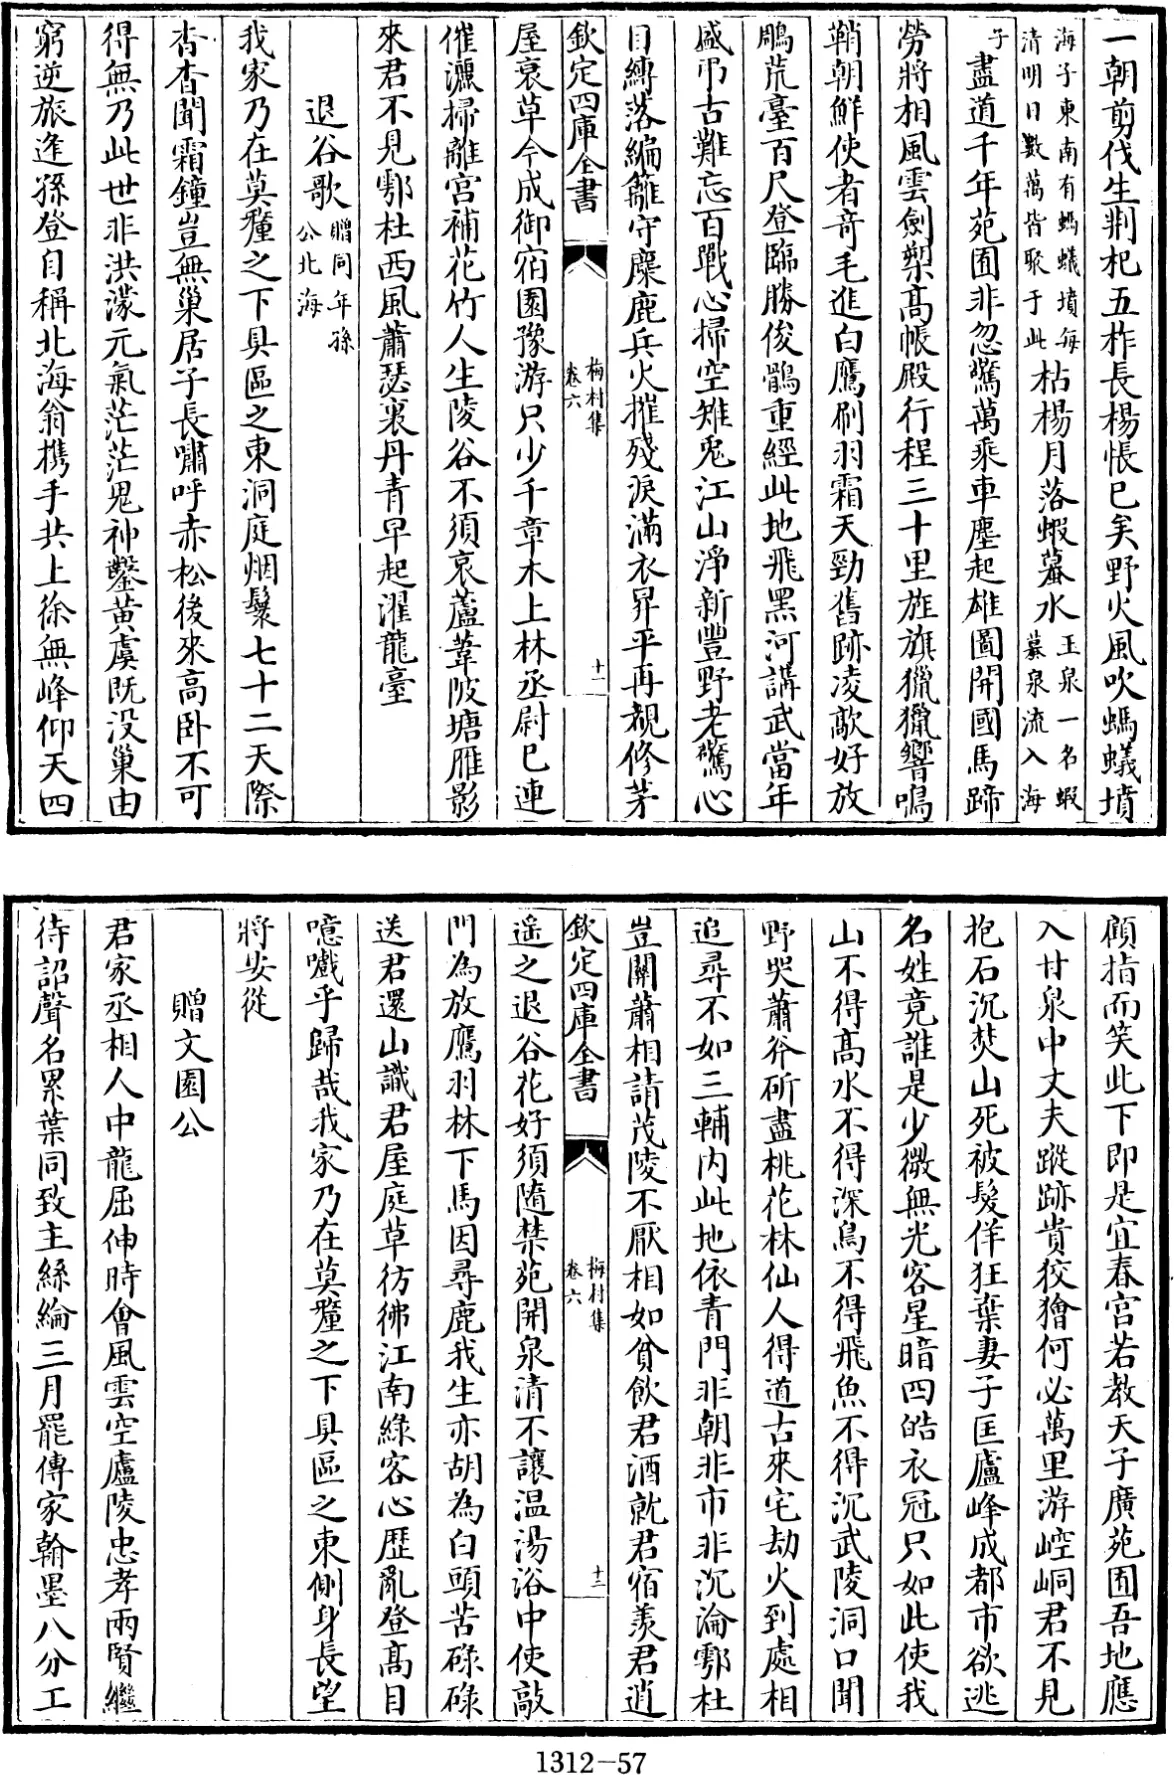 一朝剪伐生荆杞五柞長楊悵已矣野火風吹螞蟻墳
海子東南有螞蟻墳每
清明日數萬皆聚于此
枯楊月落蝦蟇水
玉泉一名蝦
蟇泉流入海
子
盡道千年苑囿非忽驚萬乘車塵起雄圖開國馬蹄
勞將相風雲劍槊高帳殿行程三十里旌旗獵獵響鳴
鞘朝鮮使者奇毛進白鷹刷羽霜天勁舊跡凌歊好放
鵰荒臺百尺登臨勝俊鶻重經此地飛黑河講武當年
盛弔古難忘百戰心掃空雉兎江山淨新豐野老驚心
目縛落編籬守麋鹿兵火摧殘淚滿衣昇平再覩修茅
欽定四庫全書
梅村集
卷六
十一
屋衰草今成御宿園豫游只少千章木上林丞尉已連
催灑掃離宫補花竹人生陵谷不須哀蘆葦陂塘雁影
來君不見鄠杜西風蕭瑟裏丹青早起濯龍臺
退谷歌
贈同年孫
公北海
我家乃在莫釐之下具區之東洞庭烟鬟七十二天際
杳杳聞霜鐘豈無巢居子長嘯呼赤松後來高卧不可
得無乃此世非洪濛元氣茫茫鬼神鑿黄虞既没巢由
窮逆旅逢孫登自稱北海翁携手共上徐無峰仰天四
顧指而笑此下即是宜春宫若教天子廣苑囿吾地應
入甘泉中丈夫蹤跡貴狡獪何必萬里游崆峒君不見
抱石沉焚山死被髮佯狂棄妻子匡廬峰成都市欲逃
名姓竟誰是少微無光客星暗四皓衣冠只如此使我
山不得高水不得深鳥不得飛魚不得沉武陵洞口聞
野哭蕭斧斫盡桃花林仙人得道古來宅劫火到處相
追尋不如三輔内此地依青門非朝非市非沉淪鄠杜
豈關蕭相請茂陵不厭相如貧飲君酒就君宿羨君逍
欽定四庫全書
梅村集
卷六
十二
遥之退谷花好須隨禁苑開泉清不讓温湯浴中使敲
門為放鷹羽林下馬因尋鹿我生亦胡為白頭苦碌碌
送君還山識君屋庭草彷彿江南緑客心歷亂登高目
噫嚱乎歸哉我家乃在莫釐之下具區之東側身長望
將安從
贈文園公
君家丞相人中龍屈伸時會風雲空廬陵忠孝兩賢繼
待詔聲名累葉同致主絲綸三月罷傳家翰墨八分工
1312－57